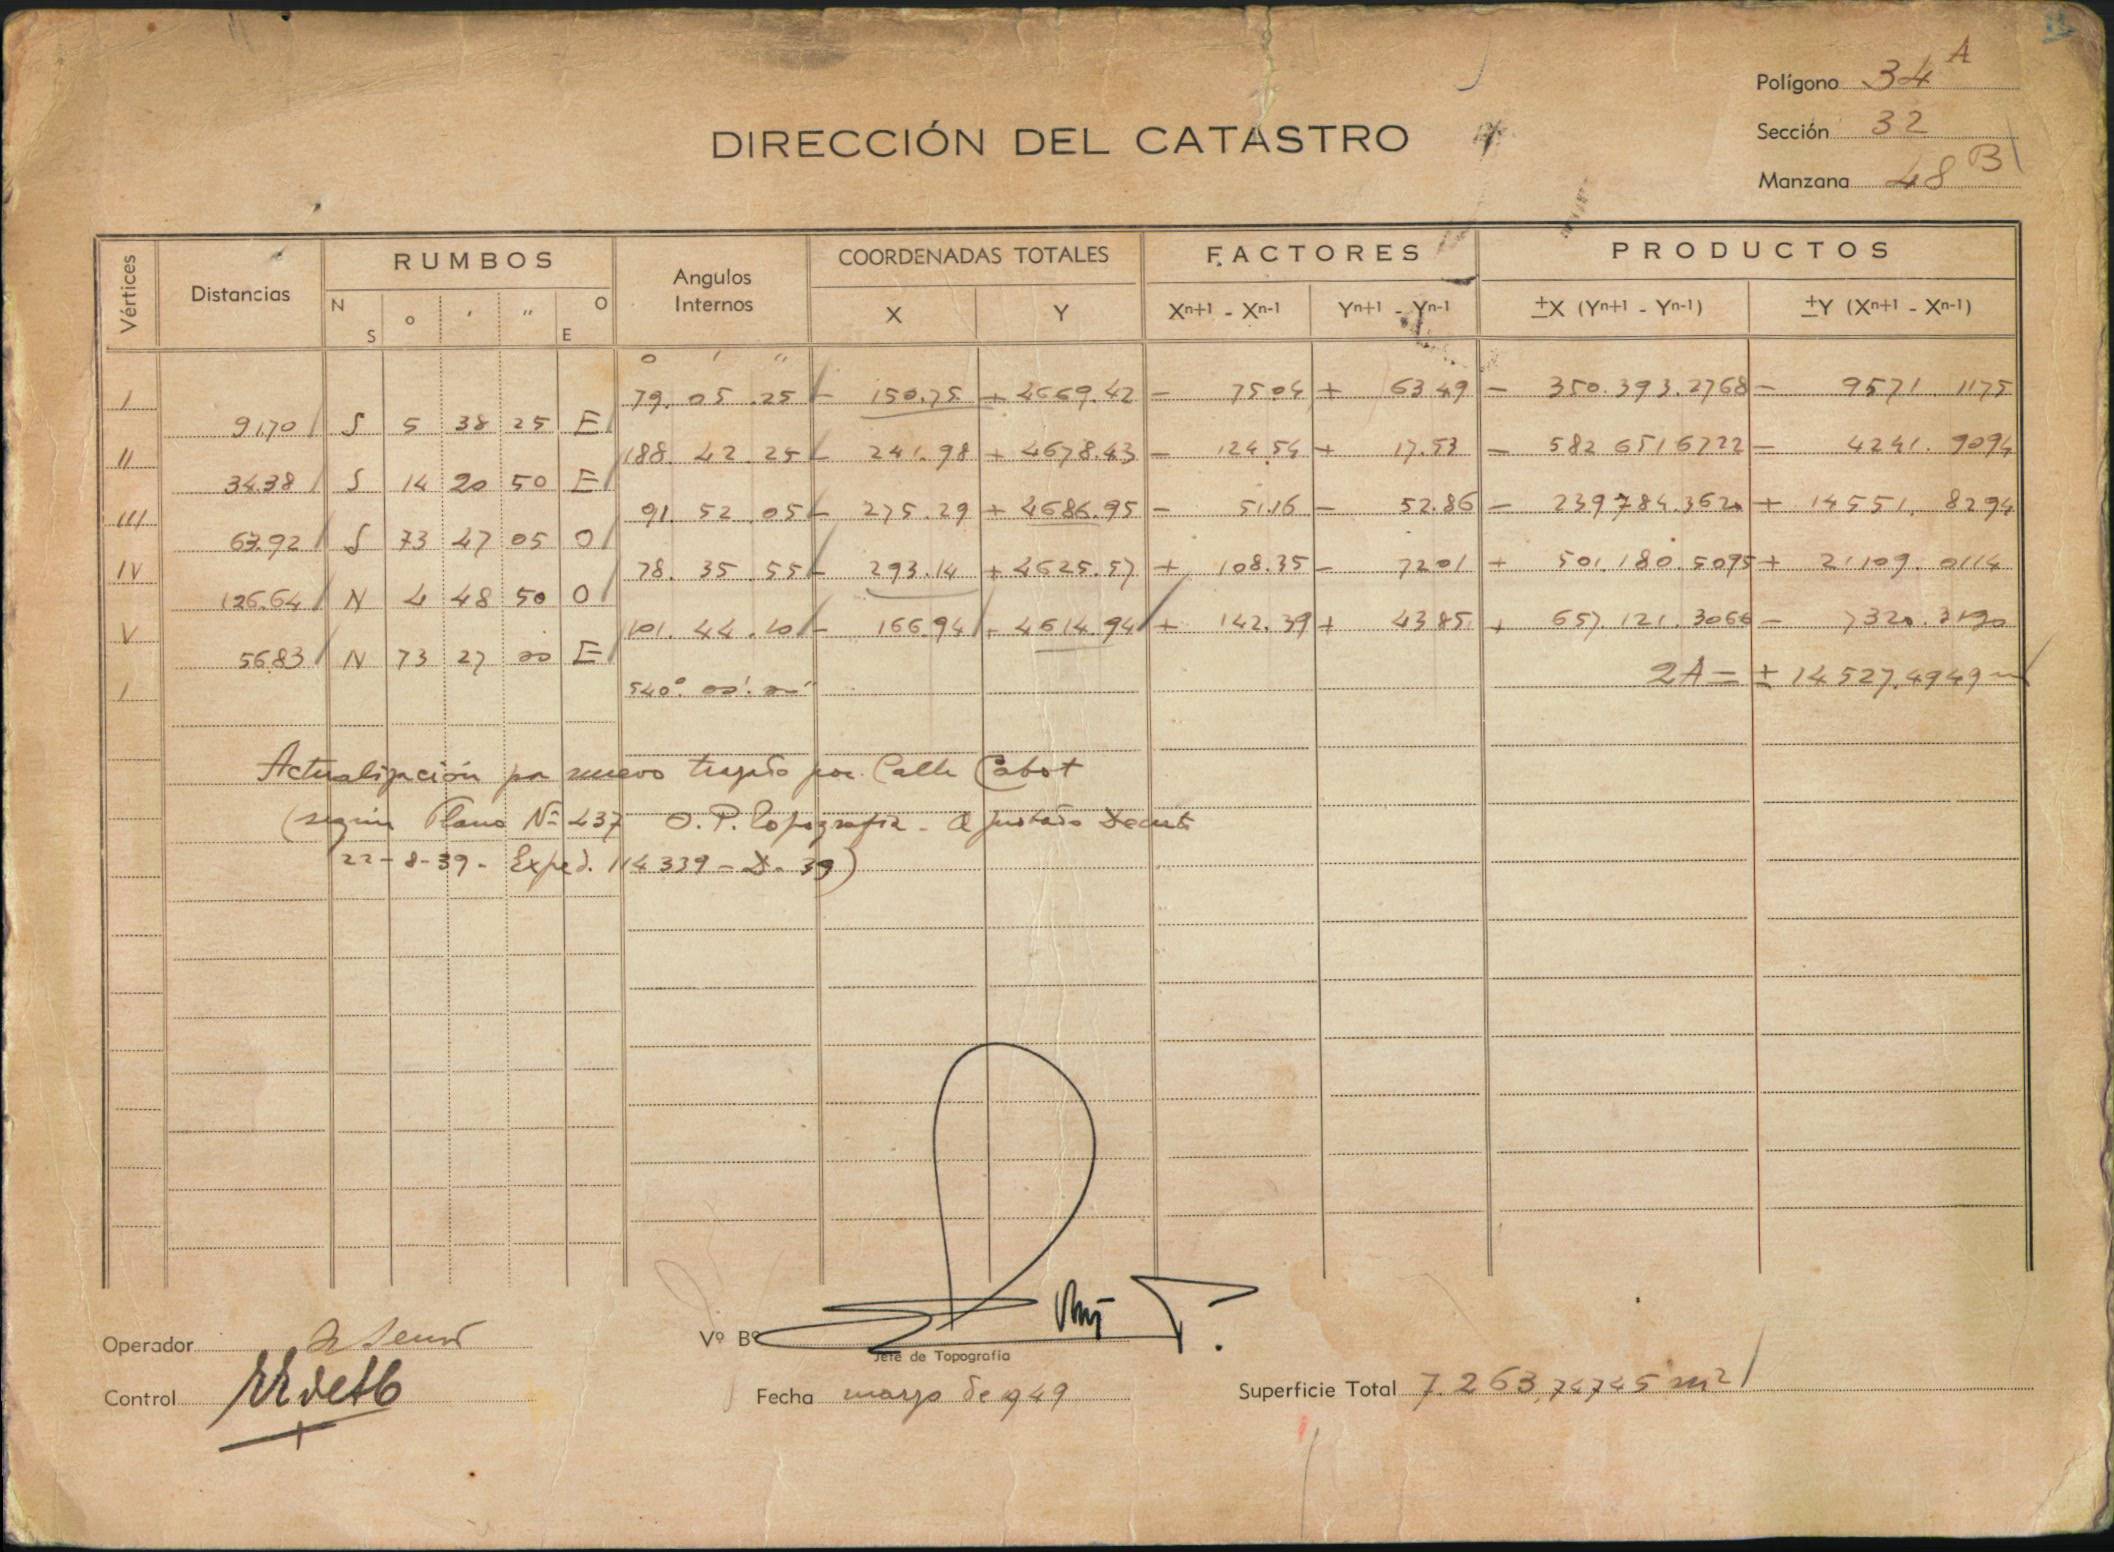 Polígono 34 A
DIRECCIÓN DEL CATASTRO
Sección 32
Manzana 48 B
Vértices Distancias RUMBOS Angulos Internos COORDENADAS TOTALES FACTORES PRODUCTOS
N S o ' " O E X Y Xn+1 - Xn-1 Yn+1 - Yn-1 ±X (Yn+1 - Yn-1) ±Y (Xn+1 - Xn-1)
o ' "
I 79. 05. 25 - 150.75 + 4669.42 - 75.04 + 63.49 - 350.393.2768 - 9571.1175
91.70 S 5 38 25 E
II 188. 42. 25 - 241.98 + 4678.43 - 124.54 + 17.53 - 582 651 6722 - 4241.9094
34.38 S 14 20 50 E
III 91. 52. 05 - 275.29 + 4686.95 - 51.16 - 52.86 - 239784.3620 + 14551.8294
63.92 S 73 47 05 O
IV 78. 35. 55 - 293.14 + 4625.57 + 108.35 - 72.01 + 501.180.5095 + 21109.0114
126.64 N 4 48 50 O
V 101. 44. 10 - 166.94 + 4614.94 + 142.39 + 43.85 + 657.121.3066 - 7320.3190
56.83 N 73 27 00 E
I 540° 00' 00" 2A = ± 14527.4949 m
Actualización por nuevo trazado por Calle Cabot
(según Plano Nº 437 O. P. Topografía - ajustado Decreto
22-8-39 - Exped. 114339 - D. 39)
Operador
Vº Bº
Jefe de Topografía
Control
Fecha marzo de 949
Superficie Total 7.263,74745 m2